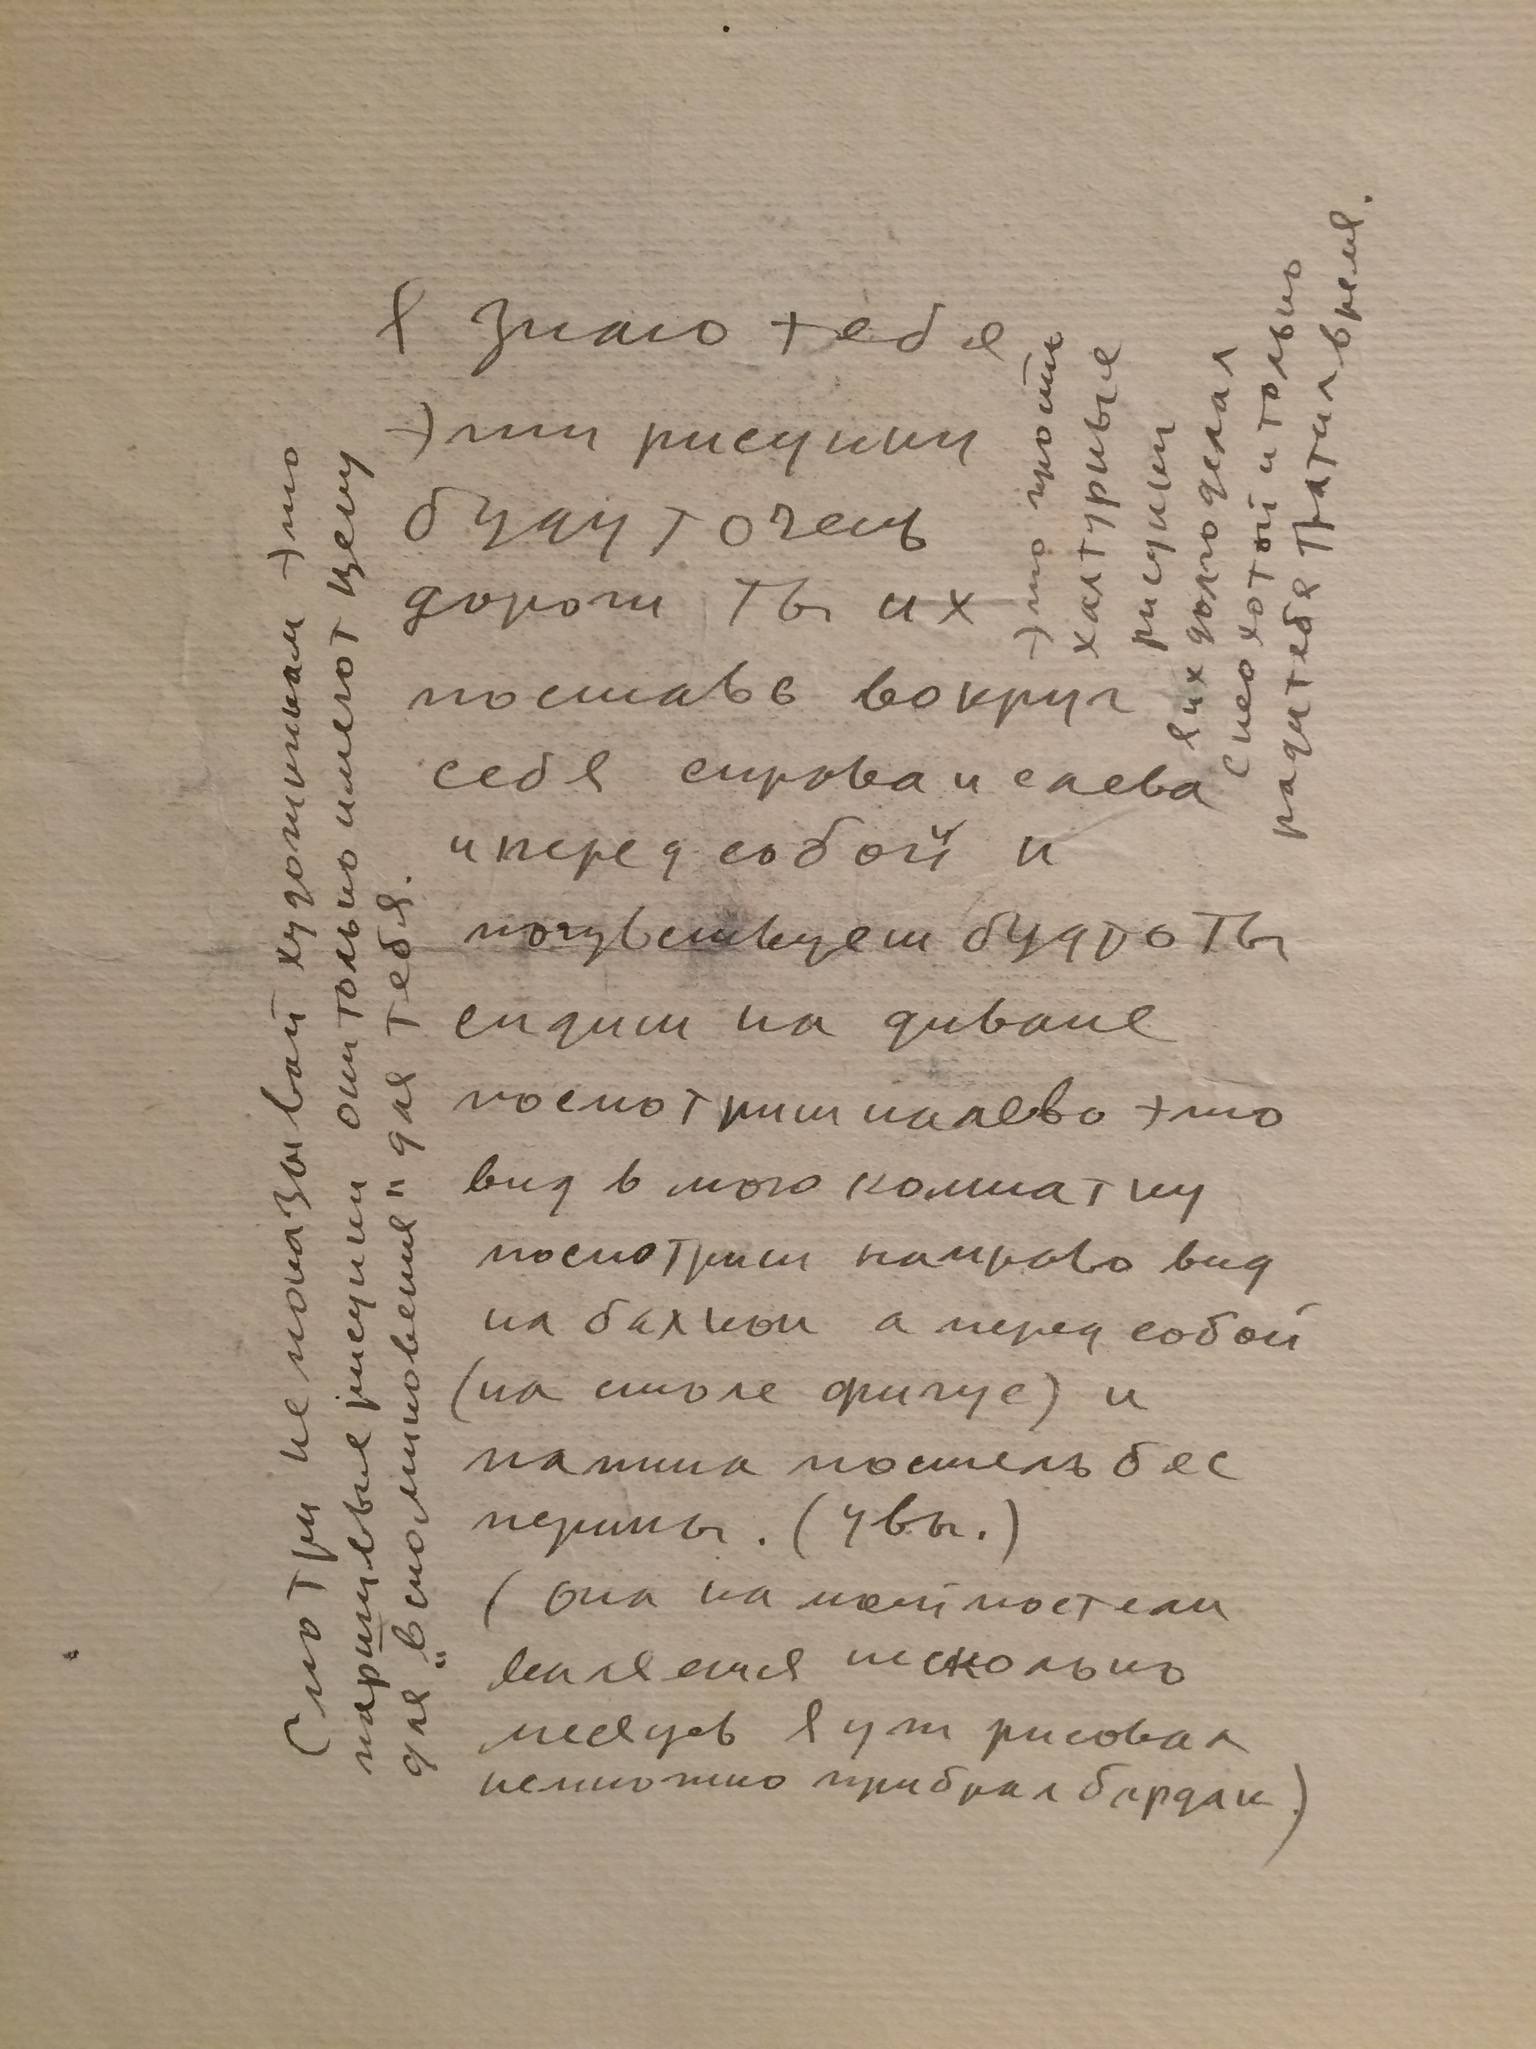 Я знаю тебя
Эти рисунки
будут очень
дороги ты их
поставь вокруг
себя справа и слева
и перед собой и
почувствуеш будто ты
сидиш на диване
посмотриш налево это
вид в мою комнатку
посмотриш направо вид
на балкон а перед собой
(на столе фигус) и
постель бес
перины. (увы.)
(она на моей постели
валяется несколько
месяцев я уж рисовал
немножко прибрал бардак)
это просто
халтурные
рисунки
я их долго делал
с неохотой и только
ради тебя тратил время.
Смотри не показывай художникам это
паршивые рисунки они только имеют цену
для "вспоминовения" для тебя.